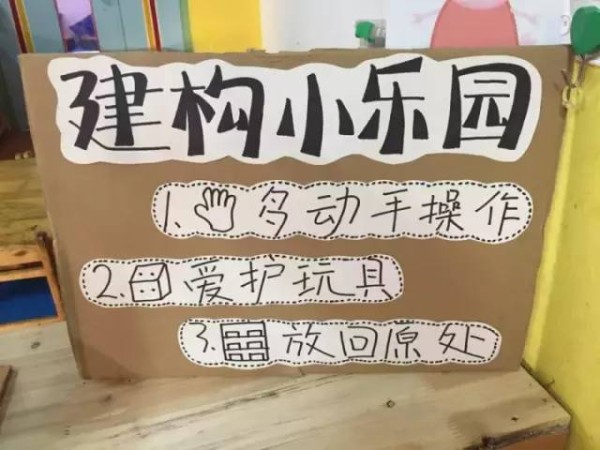 建构小乐园
1.多动手操作
2.爱护玩具
3.放回原处